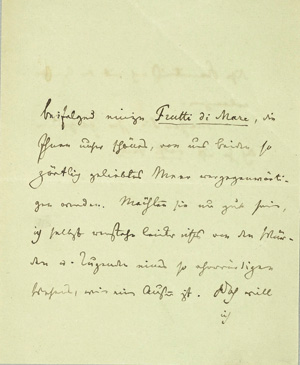 beifolgend einige Frutti di Mare, die
Ihnen unser schönes, von uns beiden so
zärtlich geliebtes Meer vergegenwärti-
gen werden. Möchten sie nur gut sein,
ich selbst verstehe leider nichts von den Wür-
den u. Tugenden eines so ehrwürdigen
Wesens, wie eine Auster ist. Doch will
ich